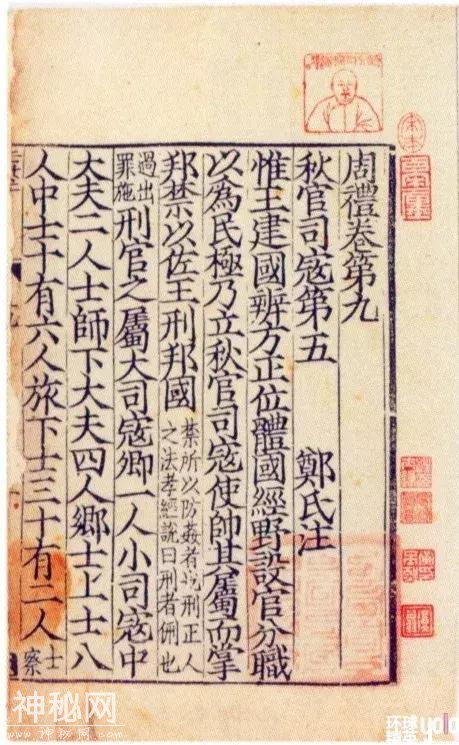 周禮卷第九
秋官司寇第五　鄭氏注
惟王建國辨方正位體國經野設官分職
以為民極乃立秋官司寇使帥其屬而掌
邦禁以佐王刑邦國禁所以防姦者也刑正人之法孝經說曰刑者侀也
過出罪施刑官之屬大司寇卿一人小司寇中
大夫二人士師下大夫四人鄉士上士八
人中士十有六人旅下士三十有二人士察
宋本
神秘网
环球